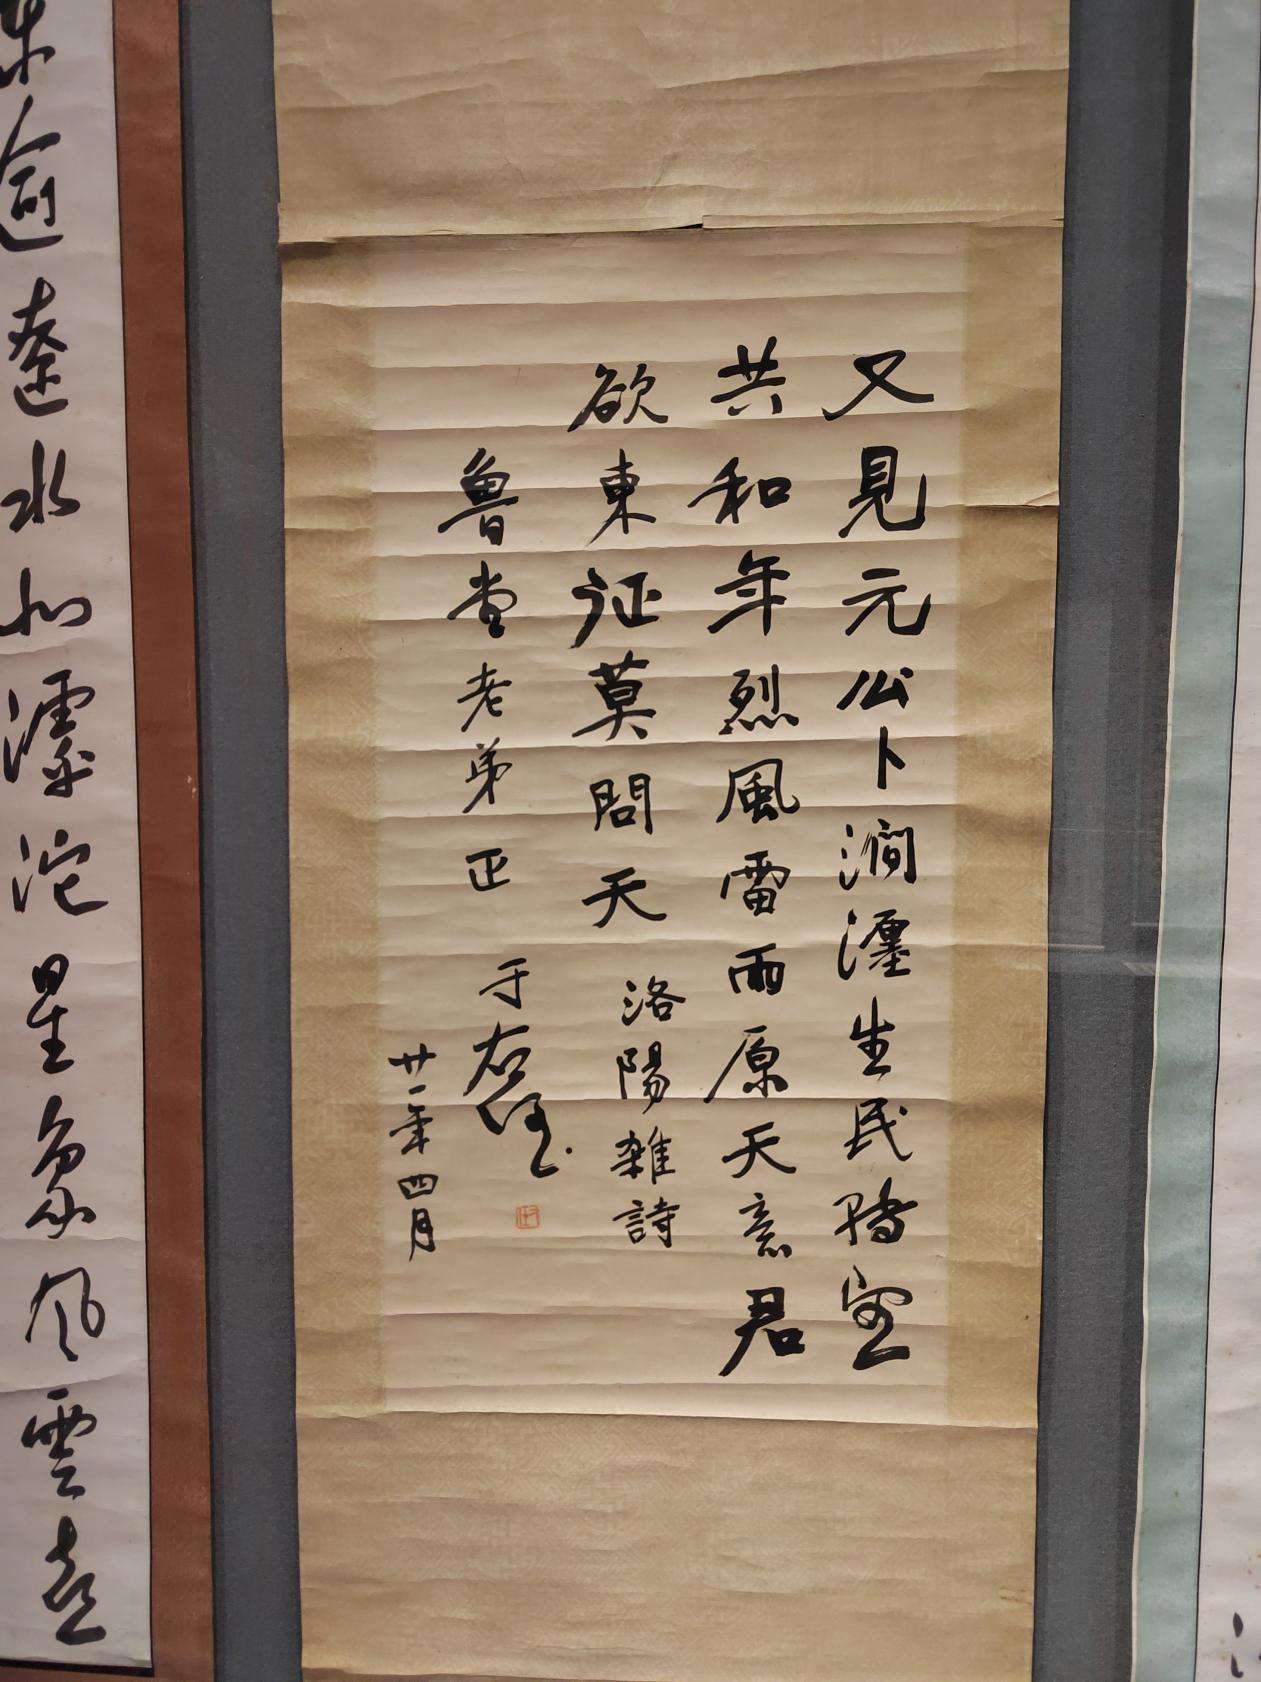 又見元公卜澗瀍生民
共和年烈風雷雨原天意君
欲東征莫問天 洛陽雜詩
魯堂老弟正 于右任
廿一年四月
東逾遼水北滹沱星象風雲喜